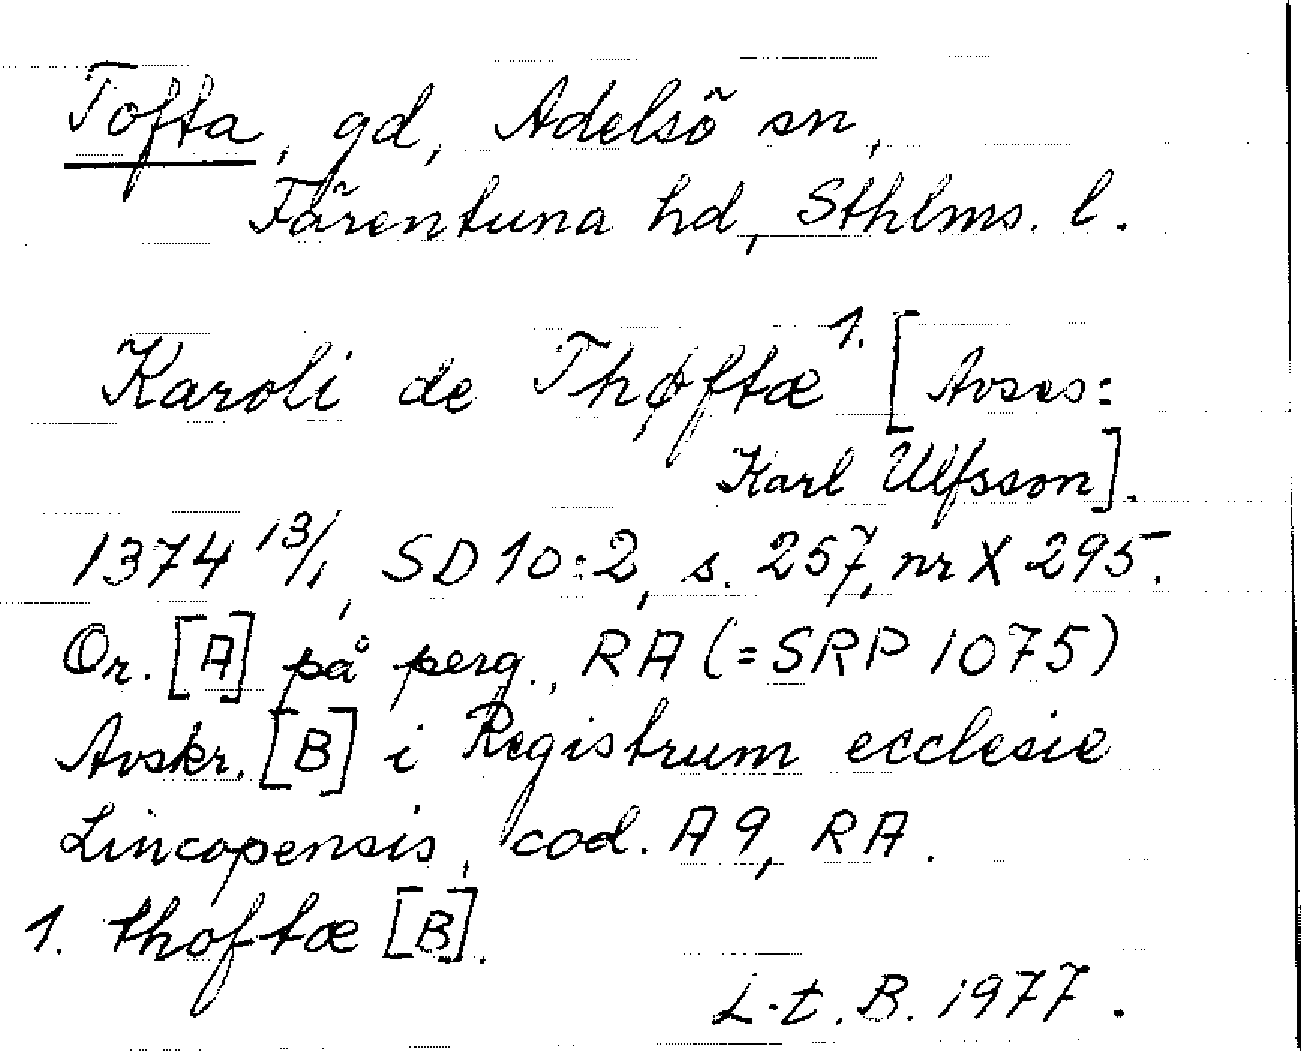 Tofta, gd, Adelsö sn,
Färentuna hd, Sthlms. l.
Karoli de Thøftæ 1. [Avses:
Karl Ulfsson].
1374 13/1, SD 10:2, s. 257, nr X 295.
Or. [A] på perg., RA (=SRP 1075)
Avskr. [B] i Registrum ecclesie
Lincopensis, cod. A 9, RA.
1. thoftæ [B].
L.t.B. 1977.